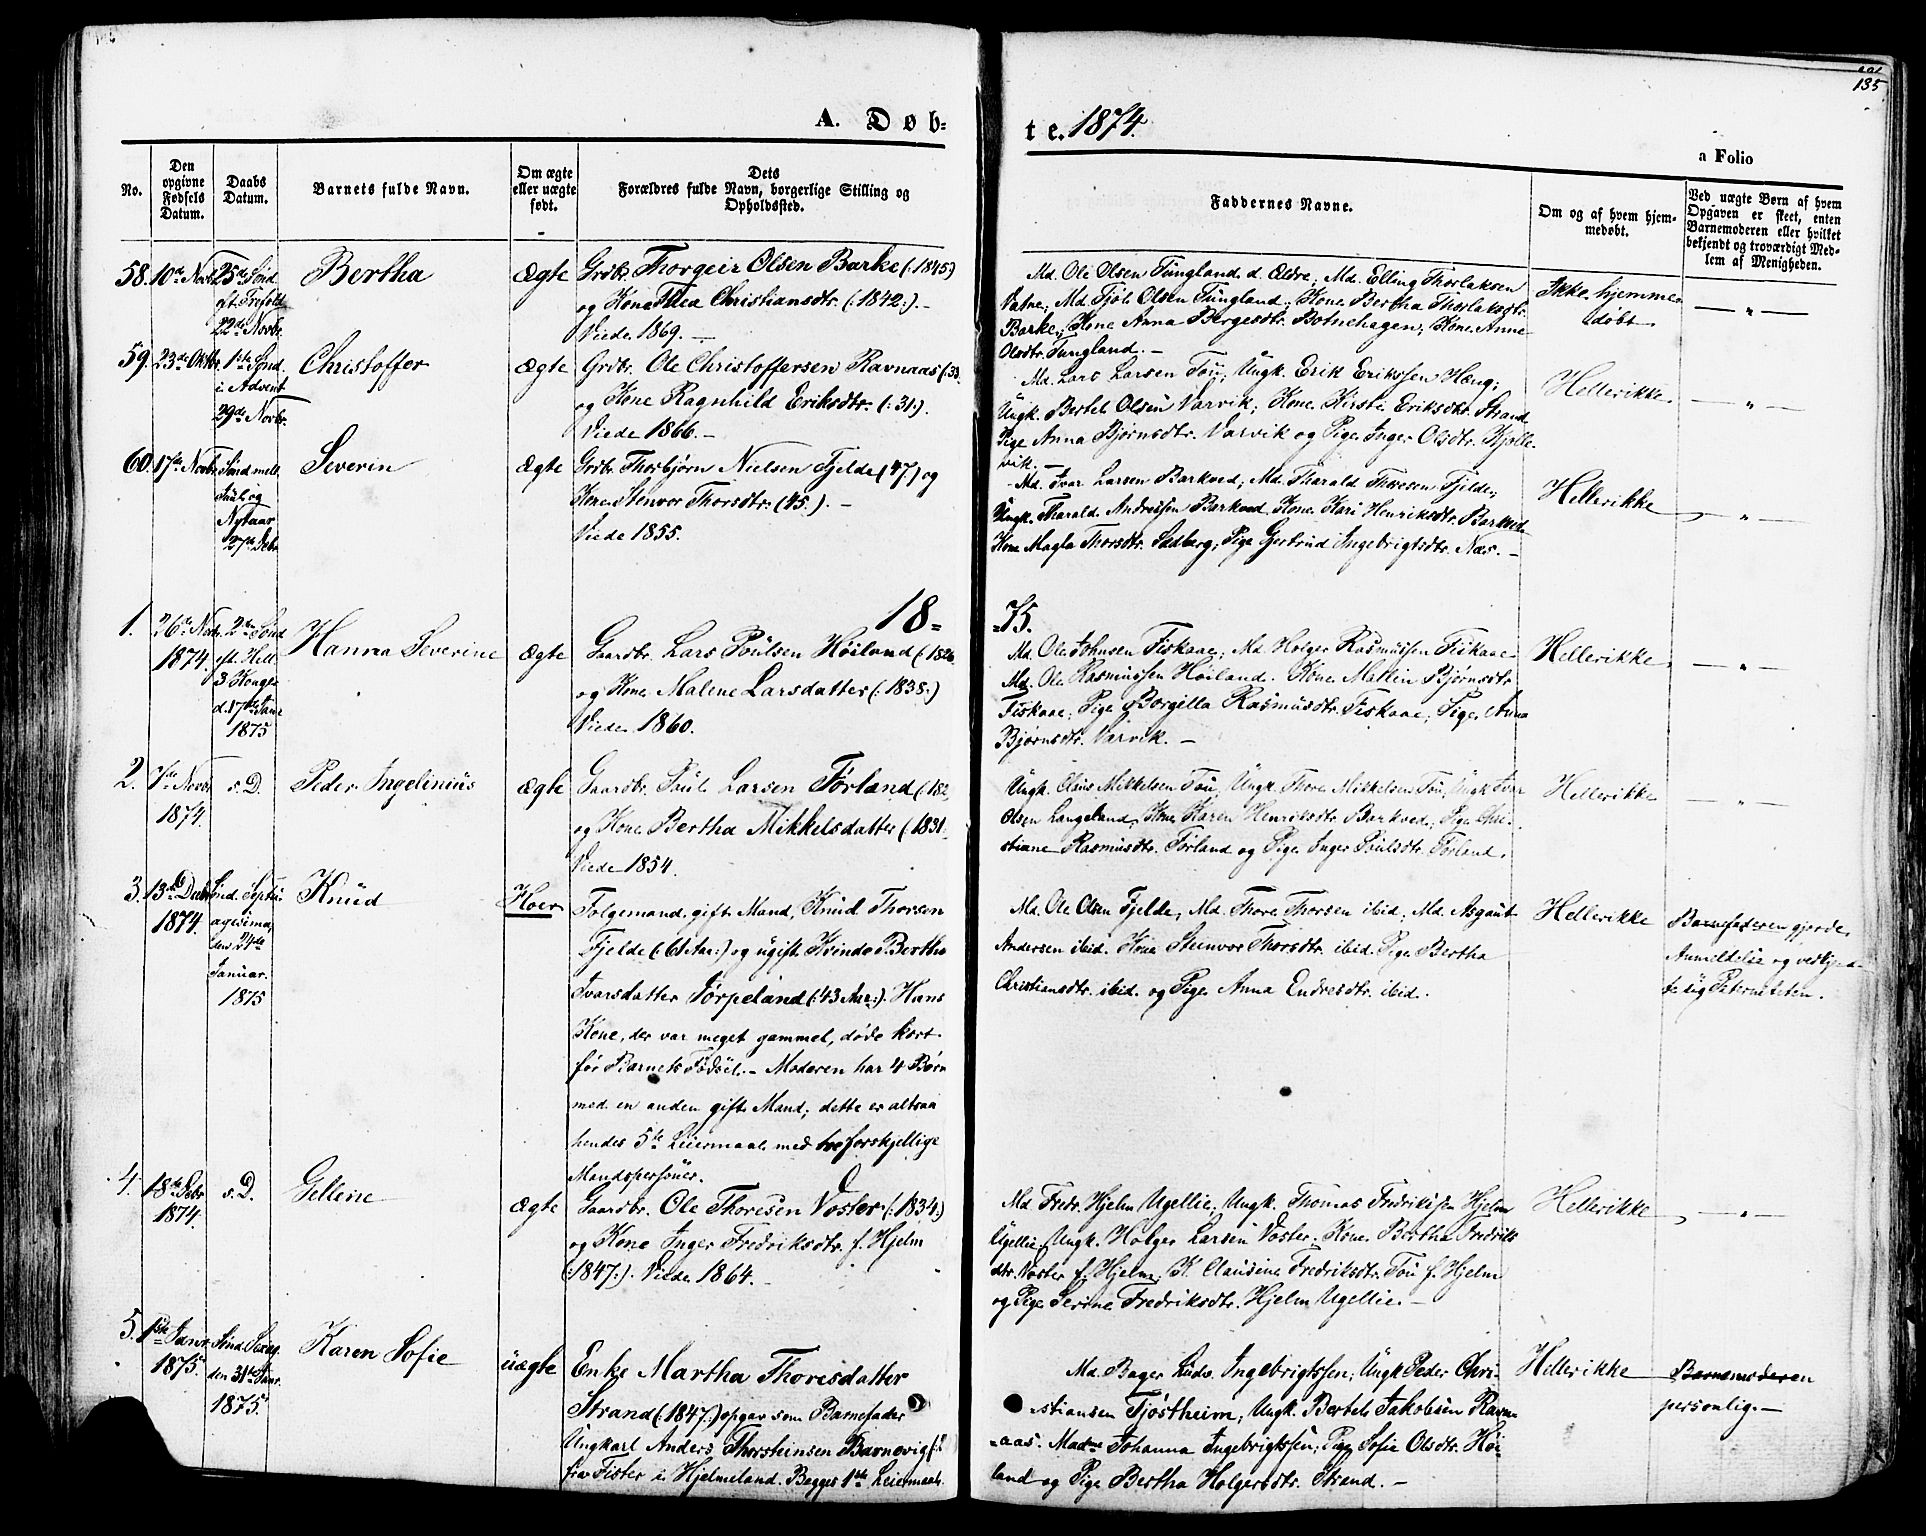 135
A. Døb-
te. 1874.
a Folio
No.
Den
opgivne
Fødsels
Datum.
Daabs
Datum.
Barnets fulde Navn.
Om ægte
eller uægte
født.
Dets
Forældres fulde Navn, borgerlige Stilling og
Opholdssted.
Faddernes Navne.
Om og af hvem hjem-
medøbt.
Ved uægte Børn af hvem
Opgaven er skeet, enten
Barnemoderen eller hvilket
bekjendt og troværdigt Med-
lem af Menigheden.
58. 10de Novbr.
25de Sønd.
eft. Trefold.
22de Novbr.
Bertha
Ægte
Grdbr. Thorgeir Olsen Barke (:1845)
og Kone Thea Christiansdtr. (:1842:). –
Viede 1869. –
Md. Ole Olsen Tungland d. Ældre; Md. Elling Thorlaksen
Vatne; Md. Tjøb Olsen Tungland; Kone Bertha Thorlaksdtr.
Barke; Kone Anna Bergesdtr. Botnehagen; Kone Anne
Olsdtr. Tungland. –
Ikke hjemme-
døbt.
— „ —
59. 23de Oktbr.
1ste Sønd.
i Advent
29de Novbr.
Christoffer
Ægte
Grdbr. Ole Christoffersen Ravnaas (:33
og Kone Ragnhild Eriksdtr. (:31:).
Viede 1866. –
Md. Lars Larsen Tou; Ungk. Erik Erikssen Høng;
Ungk. Bertel Olsen Varvik; Kone Kirsti Eriksdtr. Strand
Pige Anna Bjørnsdtr. Varvik og Pige Inger Olsdtr. Kjølle-
vik. –
Hellerikke
— „ —
60. 17de Novbr.
Sønd. mell.
Juul og
Nytaar
27de Decbr.
Severin
Ægte
Grdbr. Thorbjørn Nielsen Fjelde (47) og
Kone Stenvor Thorsdtr. (45:). –
Viede 1855.
Md. Ivar Larsen Barkved; Md. Tharald Thoresen Fjelde;
Ungk. Tharald Andreassen Barkved Kone Kari Henriksdtr. Barkved
Kone Magla Thorsdtr. Sedberg; Pige Gjertrud Ingebrigtsdtr. Næs. –
Hellerikke
— „ —
18=
=75.
1. 26de Novbr.
1874.
2den Sønd.
eft. Hell.
3 Konger
d. 17de Janr.
1875
Hanna Severine
Ægte
Gaardbr. Lars Poulsen Høiland (:1826
og Kone Malene Larsdatter (:1838:)
Viede 1860.
Md. Ole Johnsen Fiskaae; Md. Holger Rasmussen Fiskaae
Md. Ole Rasmussen Høiland. Kone Mallin Bjørnsdtr.
Fiskaae; Pige Borgilla Rasmusdtr. Fiskaae; Pige Anna
Bjørnsdtr. Varvik. –
Hellerikke
— „ —
2. 7de Novbr.
1874.
s. D.
Peder Ingelinius
Ægte
Gaardbr. Paul Larsen Førland (:182
og Kone Bertha Mikkelsdatter (:1831:
Viede 1854.
Ungk. Claus Mikkelsen Tou, Ungk. Thore Mikkelsen Tou, Ungk. Ivar
Olsen Langeland, Kone Karen Henriksdtr. Barkved; Pige Chri-
stiane Rasmusdtr. Førland og Pige Inger Paulsdtr. Førland.
Hellerikke
— „ —
3. 13de Decbr.
1874.
Sønd. Septu-
agesima
den 24de
Januar.
1875
Knud
Hoer
Folgemand, gift Mand, Knud Thorsen
Fjelde (:61 Aar:) og ugift Kvinde Bertha
Ivarsdatter Jørpeland (:43 Aar:). Hans
Kone, der var meget gammel, døde kort
før Barnets Fødsel. – Moderen har 4 Børn
med en anden gift Mand; dette er altsaa
hendes 5te Leiermaal med to forskjellige
Mandspersoner.
Md. Ole Olsen Fjelde, Md. Thore Thorsen ibid; Md. Asgaut
Andersen ibid. Kone Steinvor Thorsdtr. ibid. Pige Bertha
Christiansdtr. ibid. og Pige Anna Endresdtr. ibid.
Hellerikke
Barnefaderen gjorde
Anmeldelse og vedkjend-
te sig Paterniteten.
4. 18de Decbr.
1874.
s. D.
Gelline
Ægte
Gaardbr. Ole Thoresen Voster (:1834:)
og Kone Inger Fredriksdtr. f. Hjelm
(:1847:). Viede 1864. –
Md. Fredr. Hjelm Ugellie; Ungk. Thomas Fredrikssen Hjelm
Ugellie, Ungk. Holger Larsen Voster; Kone Bertha Fredriks
dtr. Voster f. Hjelm; K. Clausine Fredriksdtr. Tou f. Hjelm
og Pige Serine Fredriksdtr. Hjelm Ugellie. –
Hellerikke
— „ —
5. 1ste Janr.
1875.
Sønd. Sexag.
den 31te Janr.
1875.
Karen Sofie
uægte
Enke Martha Thoresdatter
Strand (:1847:) opgav som Barnefader
Ungkarl Anders Thorsteinsen Barnevig (:
fra Fister i Hjelmeland. Begges 1ste Leiermaal.
Md. Bager Ludv. Ingebrigtssen; Ungk. Peder Chri-
stiansen Tjøstheim; Ungk. Bertel Jakobsen Ravn-
aas. Madme Johanna Ingebrigtssen; Pige Sofie Olsdtr. Høi-
land og Pige Bertha Holgersdtr. Strand. –
Hellerikke
Barnemoderen
personlig. –